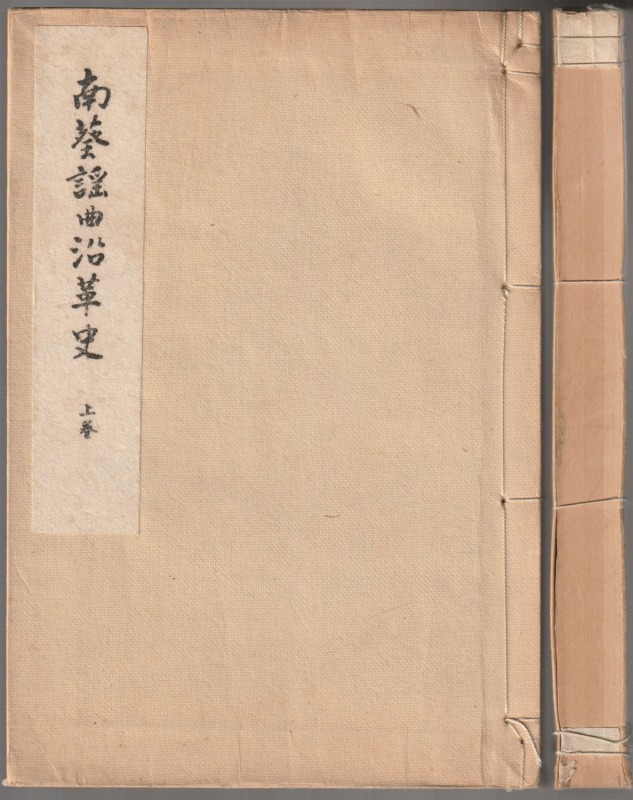 南葵謡曲沿革史
上巻